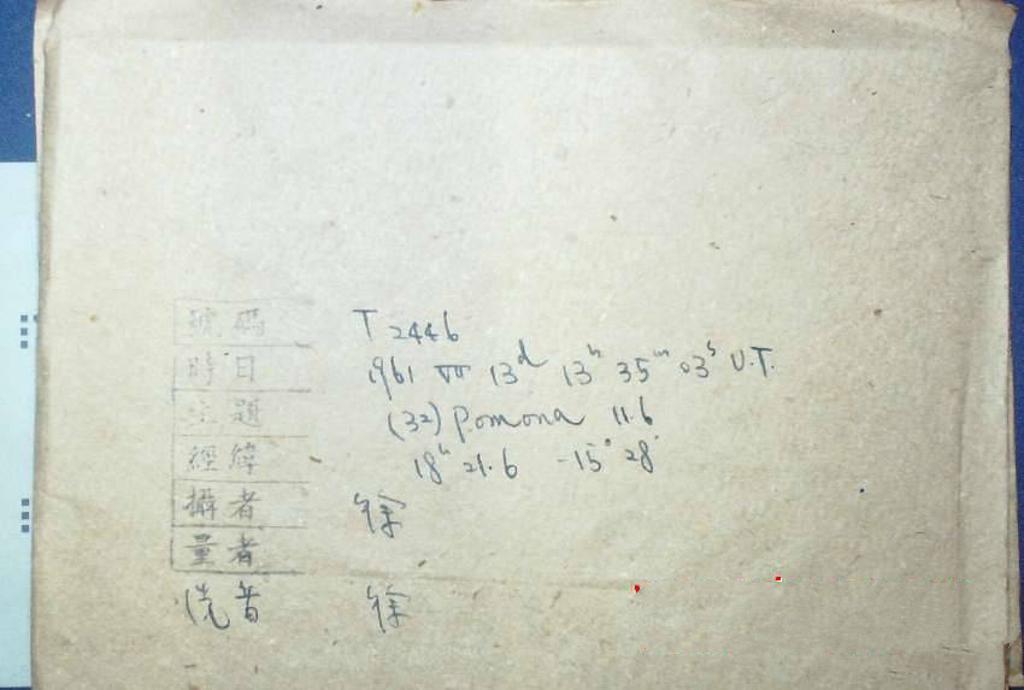 號碼 T 2446
時日 1961 VII 13ᵈ 13ʰ 35ᵐ 03ˢ U.T.
主題 (32) Pomona 11.6
經緯 18ʰ 21.6 -15° 28'
攝者 徐
量者
洗者 徐